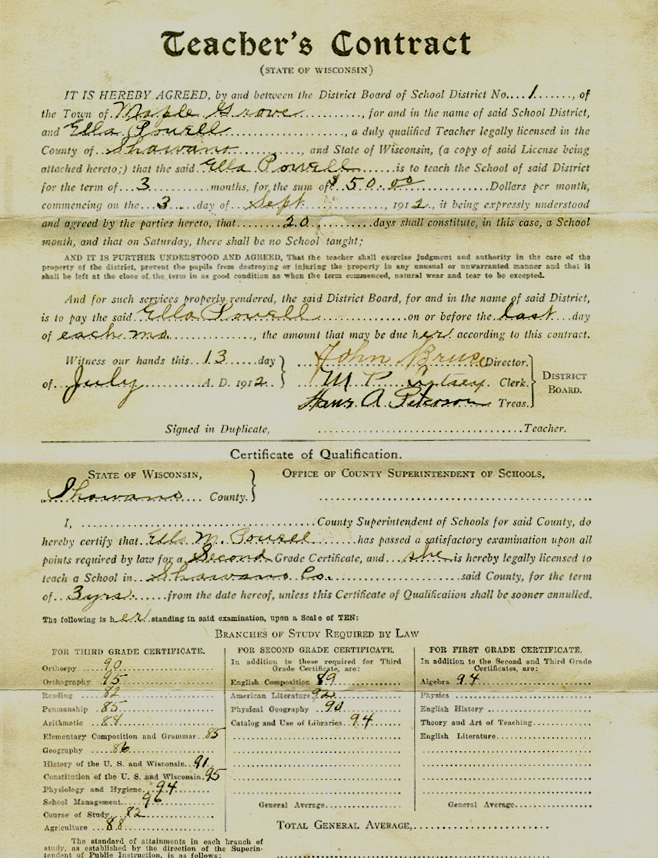 Teacher's Contract
(STATE OF WISCONSIN)
IT IS HEREBY AGREED, by and between the District Board of School District No. 1, of
the Town of Maple Grove, for and in the name of said School District,
and Ella Powell, a duly qualified Teacher legally licensed in the
County of Shawano, and State of Wisconsin, (a copy of said License being
attached hereto;) that the said Ella Powell is to teach the School of said District
for the term of 3 months, for the sum of $50.00 Dollars per month,
commencing on the 3 day of Sept, 1912, it being expressly understood
and agreed by the parties hereto, that 20 days shall constitute, in this case, a School
month, and that on Saturday, there shall be no School taught;
AND IT IS FURTHER UNDERSTOOD AND AGREED, That the teacher shall exercise judgment and authority in the care of the
property of the district, prevent the pupils from destroying or injuring the property in any unusual or unwarranted manner and that it
shall be left at the close of the term in as good condition as when the term commenced, natural wear and tear to be excepted.
And for such services properly rendered, the said District Board, for and in the name of said District,
is to pay the said Ella Powell on or before the last day
of each mo, the amount that may be due her according to this contract.
Witness our hands this 13 day
of July A. D. 1912
John Bruse Director.
M. P. Clerk.
Hans A. Peterson Treas.
DISTRICT
BOARD.
Signed in Duplicate, Teacher.
Certificate of Qualification.
STATE OF WISCONSIN,
Shawano County.
OFFICE OF COUNTY SUPERINTENDENT OF SCHOOLS,
I, County Superintendent of Schools for said County, do
hereby certify that Ella M. Powell has passed a satisfactory examination upon all
points required by law for a Second Grade Certificate, and she is hereby legally licensed to
teach a School in Shawano Co. said County, for the term
of 3 yrs. from the date hereof, unless this Certificate of Qualification shall be sooner annulled.
The following is her standing in said examination, upon a Scale of TEN:
BRANCHES OF STUDY REQUIRED BY LAW
FOR THIRD GRADE CERTIFICATE.
Orthoepy 90
Orthography 95
Reading 82
Penmanship 85
Arithmetic 88
Elementary Composition and Grammar 85
Geography 86
History of the U. S. and Wisconsin 91
Constitution of the U. S. and Wisconsin 95
Physiology and Hygiene 94
School Management 96
Course of Study 82
Agriculture 88
The standard of attainments in each branch of
study, as established by the direction of the Superin-
tendent of Public Instruction, is as follows:
FOR SECOND GRADE CERTIFICATE.
In addition to those required for Third
Grade Certificate, are:
English Composition 89
American Literature 92
Physical Geography 90
Catalog and Use of Libraries 94
General Average
FOR FIRST GRADE CERTIFICATE.
In addition to the Second and Third Grade
Certificates, are:
Algebra 94
Physics
English History
Theory and Art of Teaching
English Literature
General Average
TOTAL GENERAL AVERAGE,